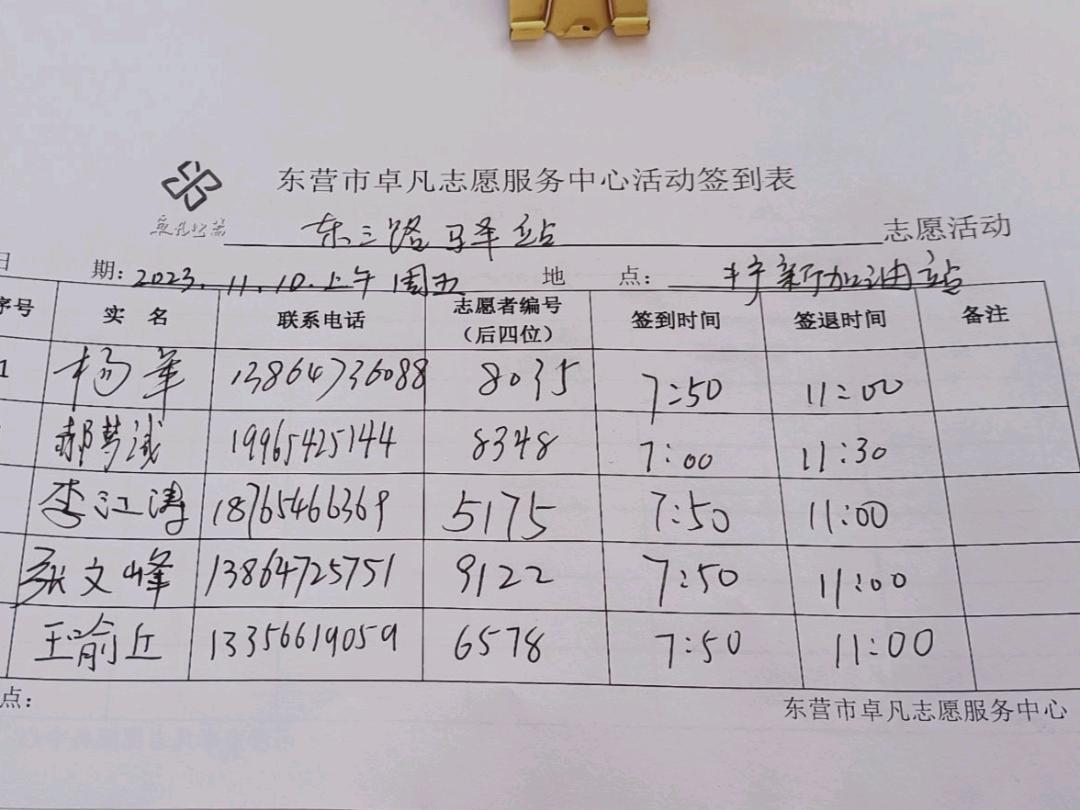 东营市卓凡志愿服务中心活动签到表
东三路驿站 志愿活动
日 期: 2023.11.10.上午 周五 地 点: 新加油站
序号 实 名 联系电话 志愿者编号（后四位） 签到时间 签退时间 备注
1 杨军 13864736088 8035 7:50 11:00
郝梦诚 19965425144 8348 7:00 11:30
李江涛 18765466369 5175 7:50 11:00
张文峰 13864725751 9122 7:50 11:00
王喻丘 13356619059 6578 7:50 11:00
点:
东营市卓凡志愿服务中心